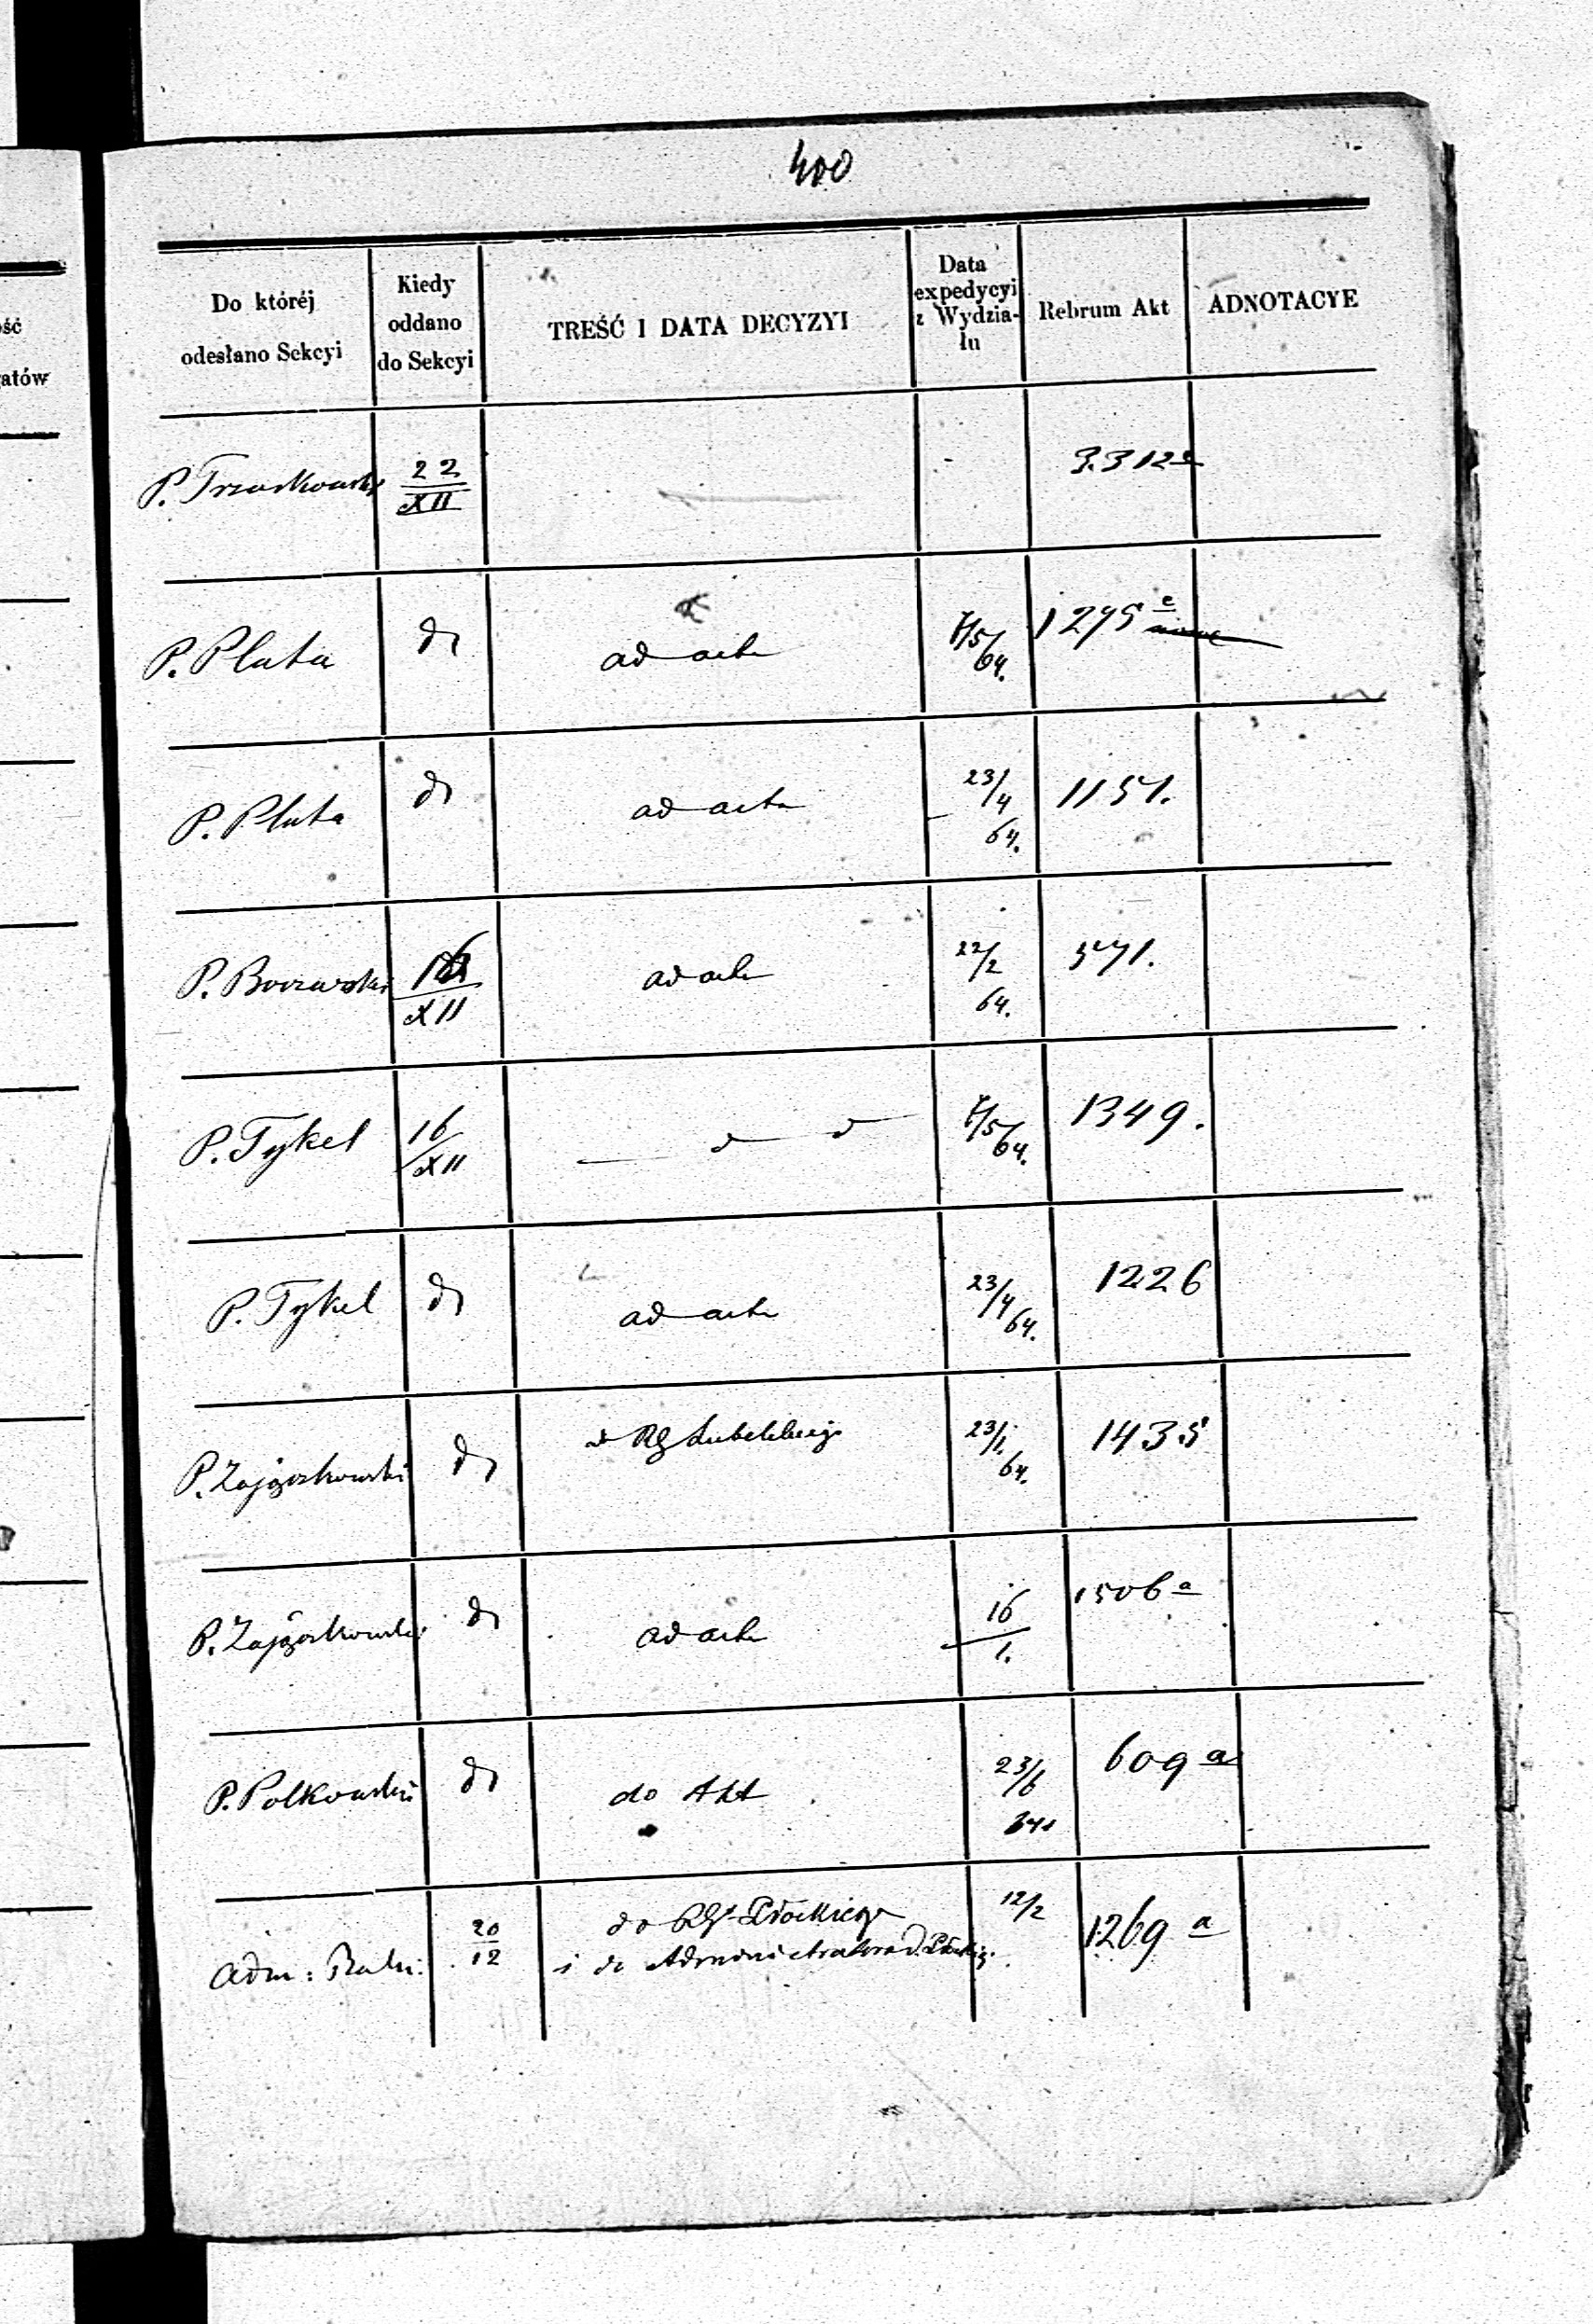 400
ość
atów
Do któréj
odesłano Sekcyi
Kiedy
oddano
do Sekcyi
TREŚĆ I DATA DECYZYI
Data
expedycyi
z Wydzia-
łu
Rebrum Akt
ADNOTACYE
P. Trzaskowski 22/XII 3.312
P. Pluta do ad acta 7/5/64. 1295 e
P. Pluta do ad acta 23/4 64. 1151.
P. Borzewski XII ad acta 22/2 64. 571.
P. Tykel 16/XII d d 7/5/64. 1349.
P. Tykel do ad acta 23/4 64. 1226
P. Zajączkowski do Lubelskiego 23/1. 64. 1435
P. Zajączkowski do ad acta 16/1. 1506 a
P. Polkowski do do Akt 23/6 609 a
Adm: 20/12 do Płockiego 12/2 1269 a
i do Administratora D.